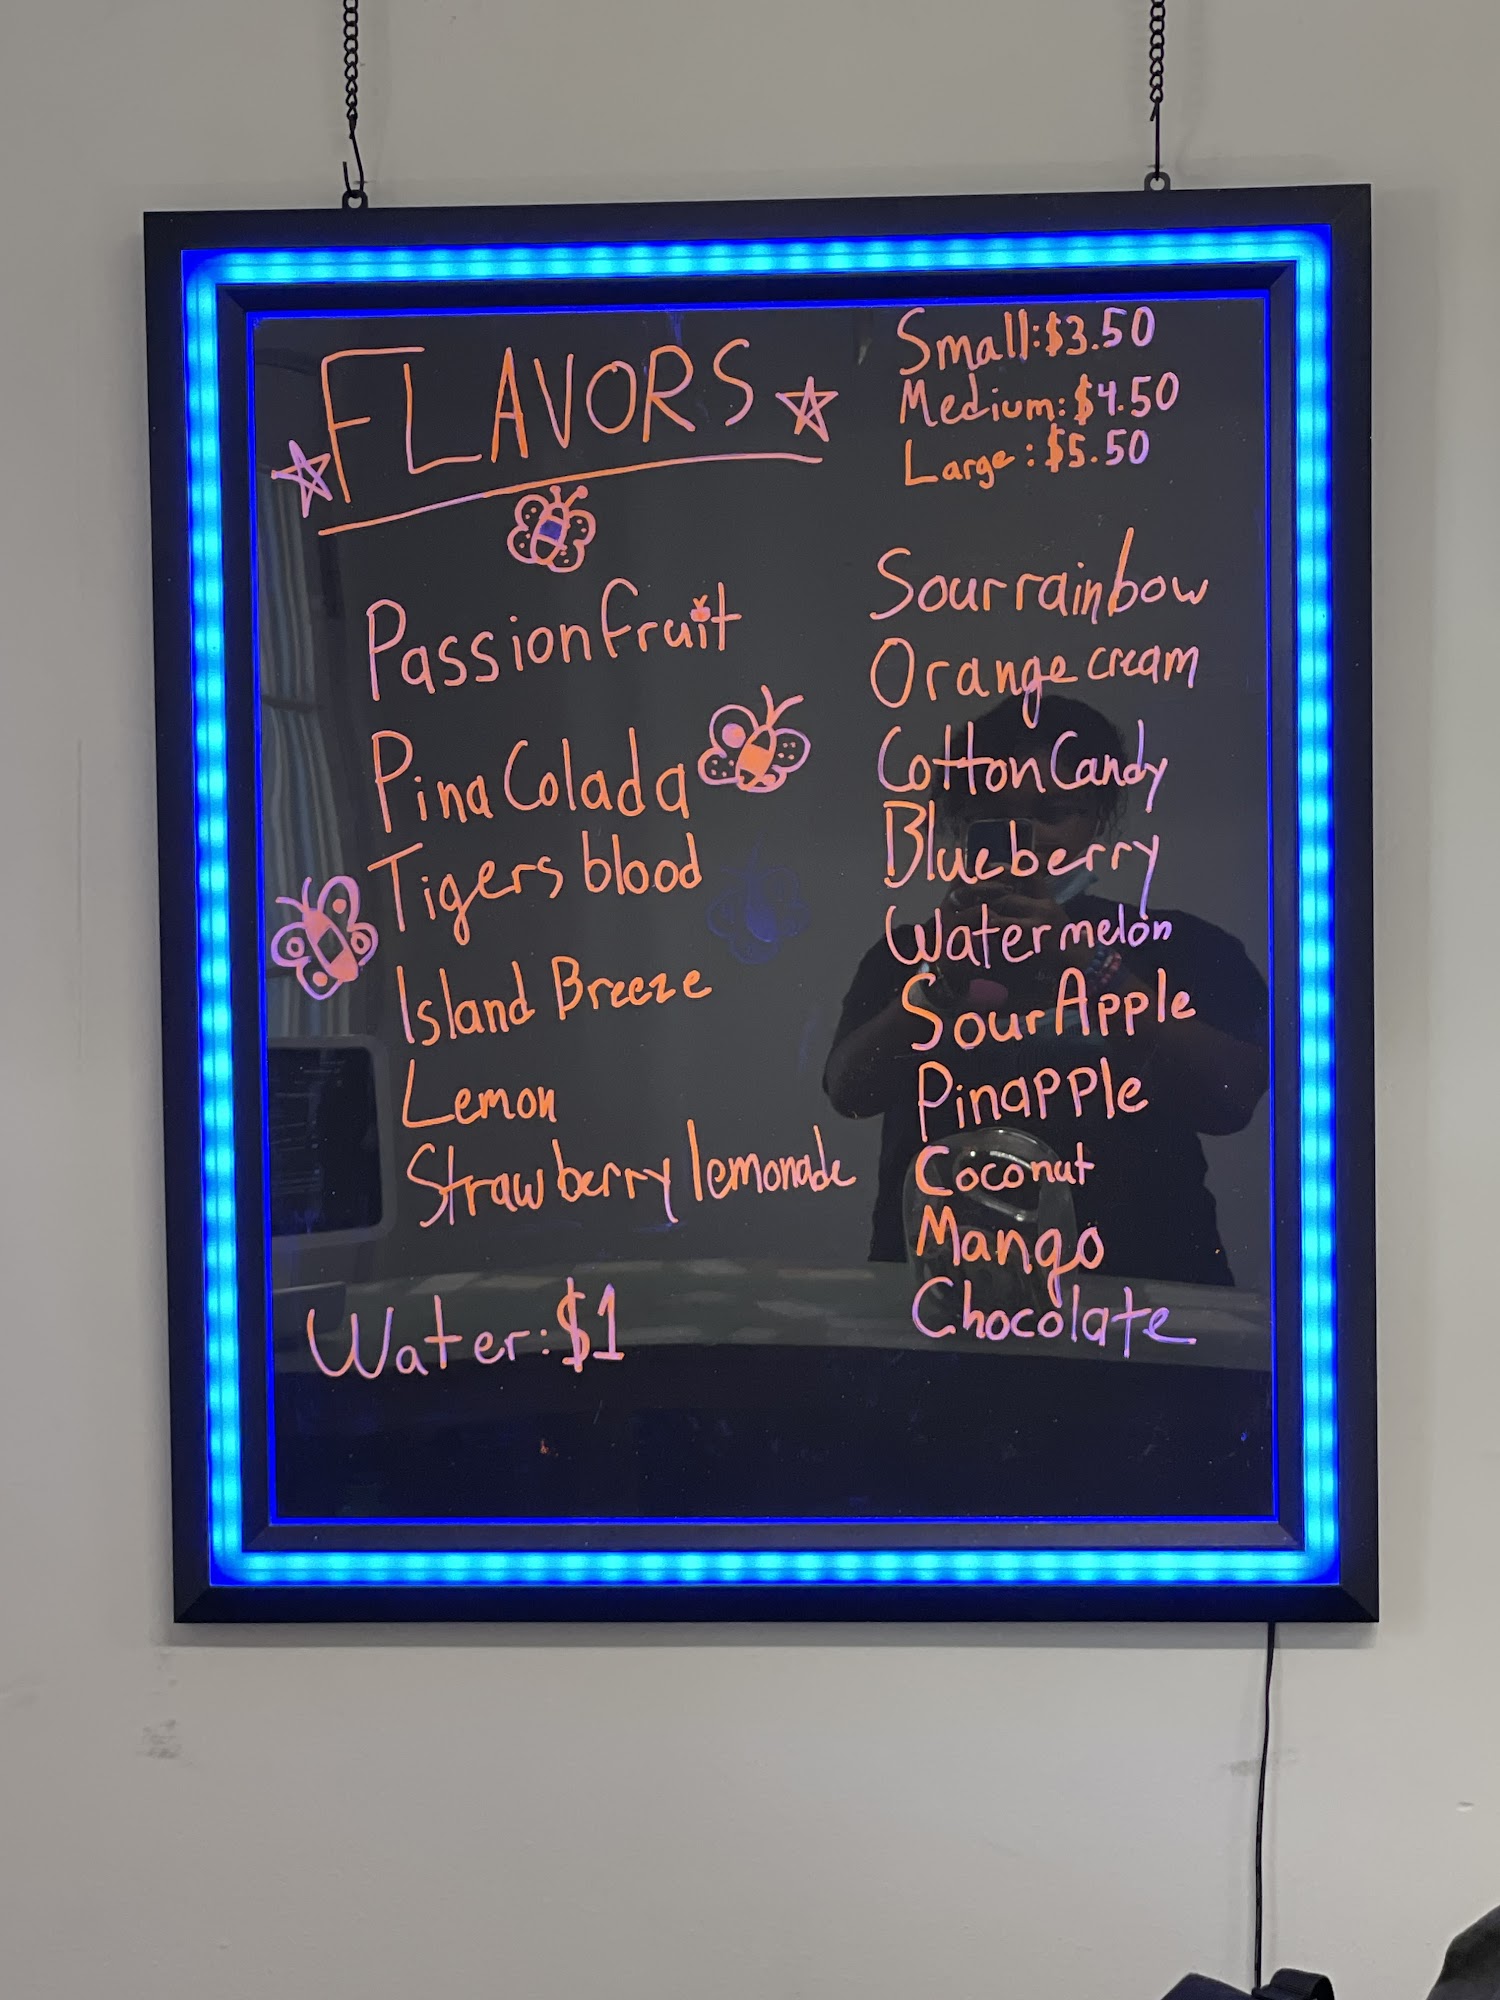 FLAVORS
Small: $3.50
Medium: $4.50
Large: $5.50
Passion fruit
Pina Colada
Tigers blood
Island Breeze
Lemon
Strawberry lemonade
Water: $1
Sour rainbow
Orange cream
Cotton Candy
Blueberry
Watermelon
Sour Apple
Pinapple
Coconut
Mango
Chocolate